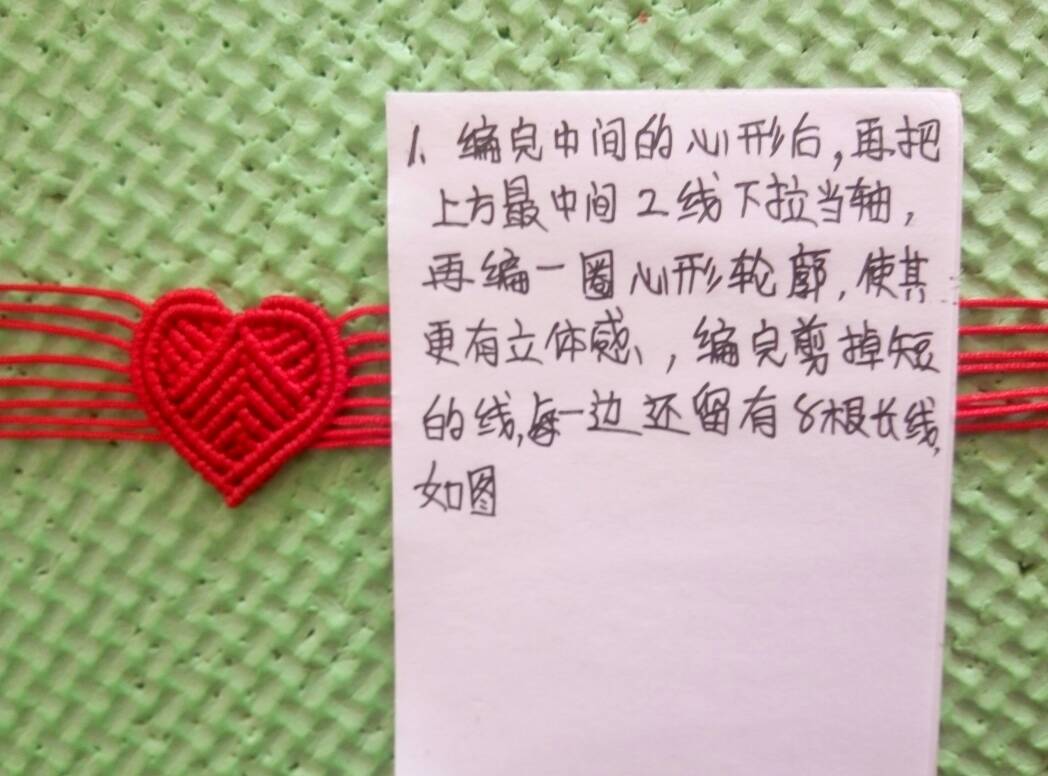 1、编完中间的心形后,再把
上方最中间2线下拉当轴,
再编一圈心形轮廓,使其
更有立体感、,编完剪掉短
的线,每一边还留有8根长线,
如图